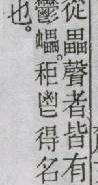 從畾聲者皆有
鬱。秬鬯得名
也。